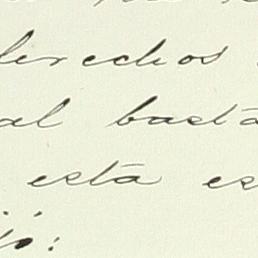 derechos
al basta
esta es